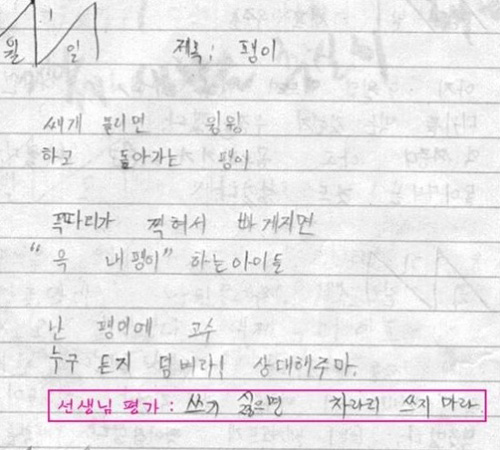 월 일
제목; 팽이
쌔게 돌리면 윙윙
하고 돌아가는 팽이
찍혀서 빠게지면
"윽 내팽이" 하는아이들
난 팽이에 고수
누구 든지 덤벼라! 상대해주마.
선생님 평가 : 쓰기 싫으면 차라리 쓰지 마라.